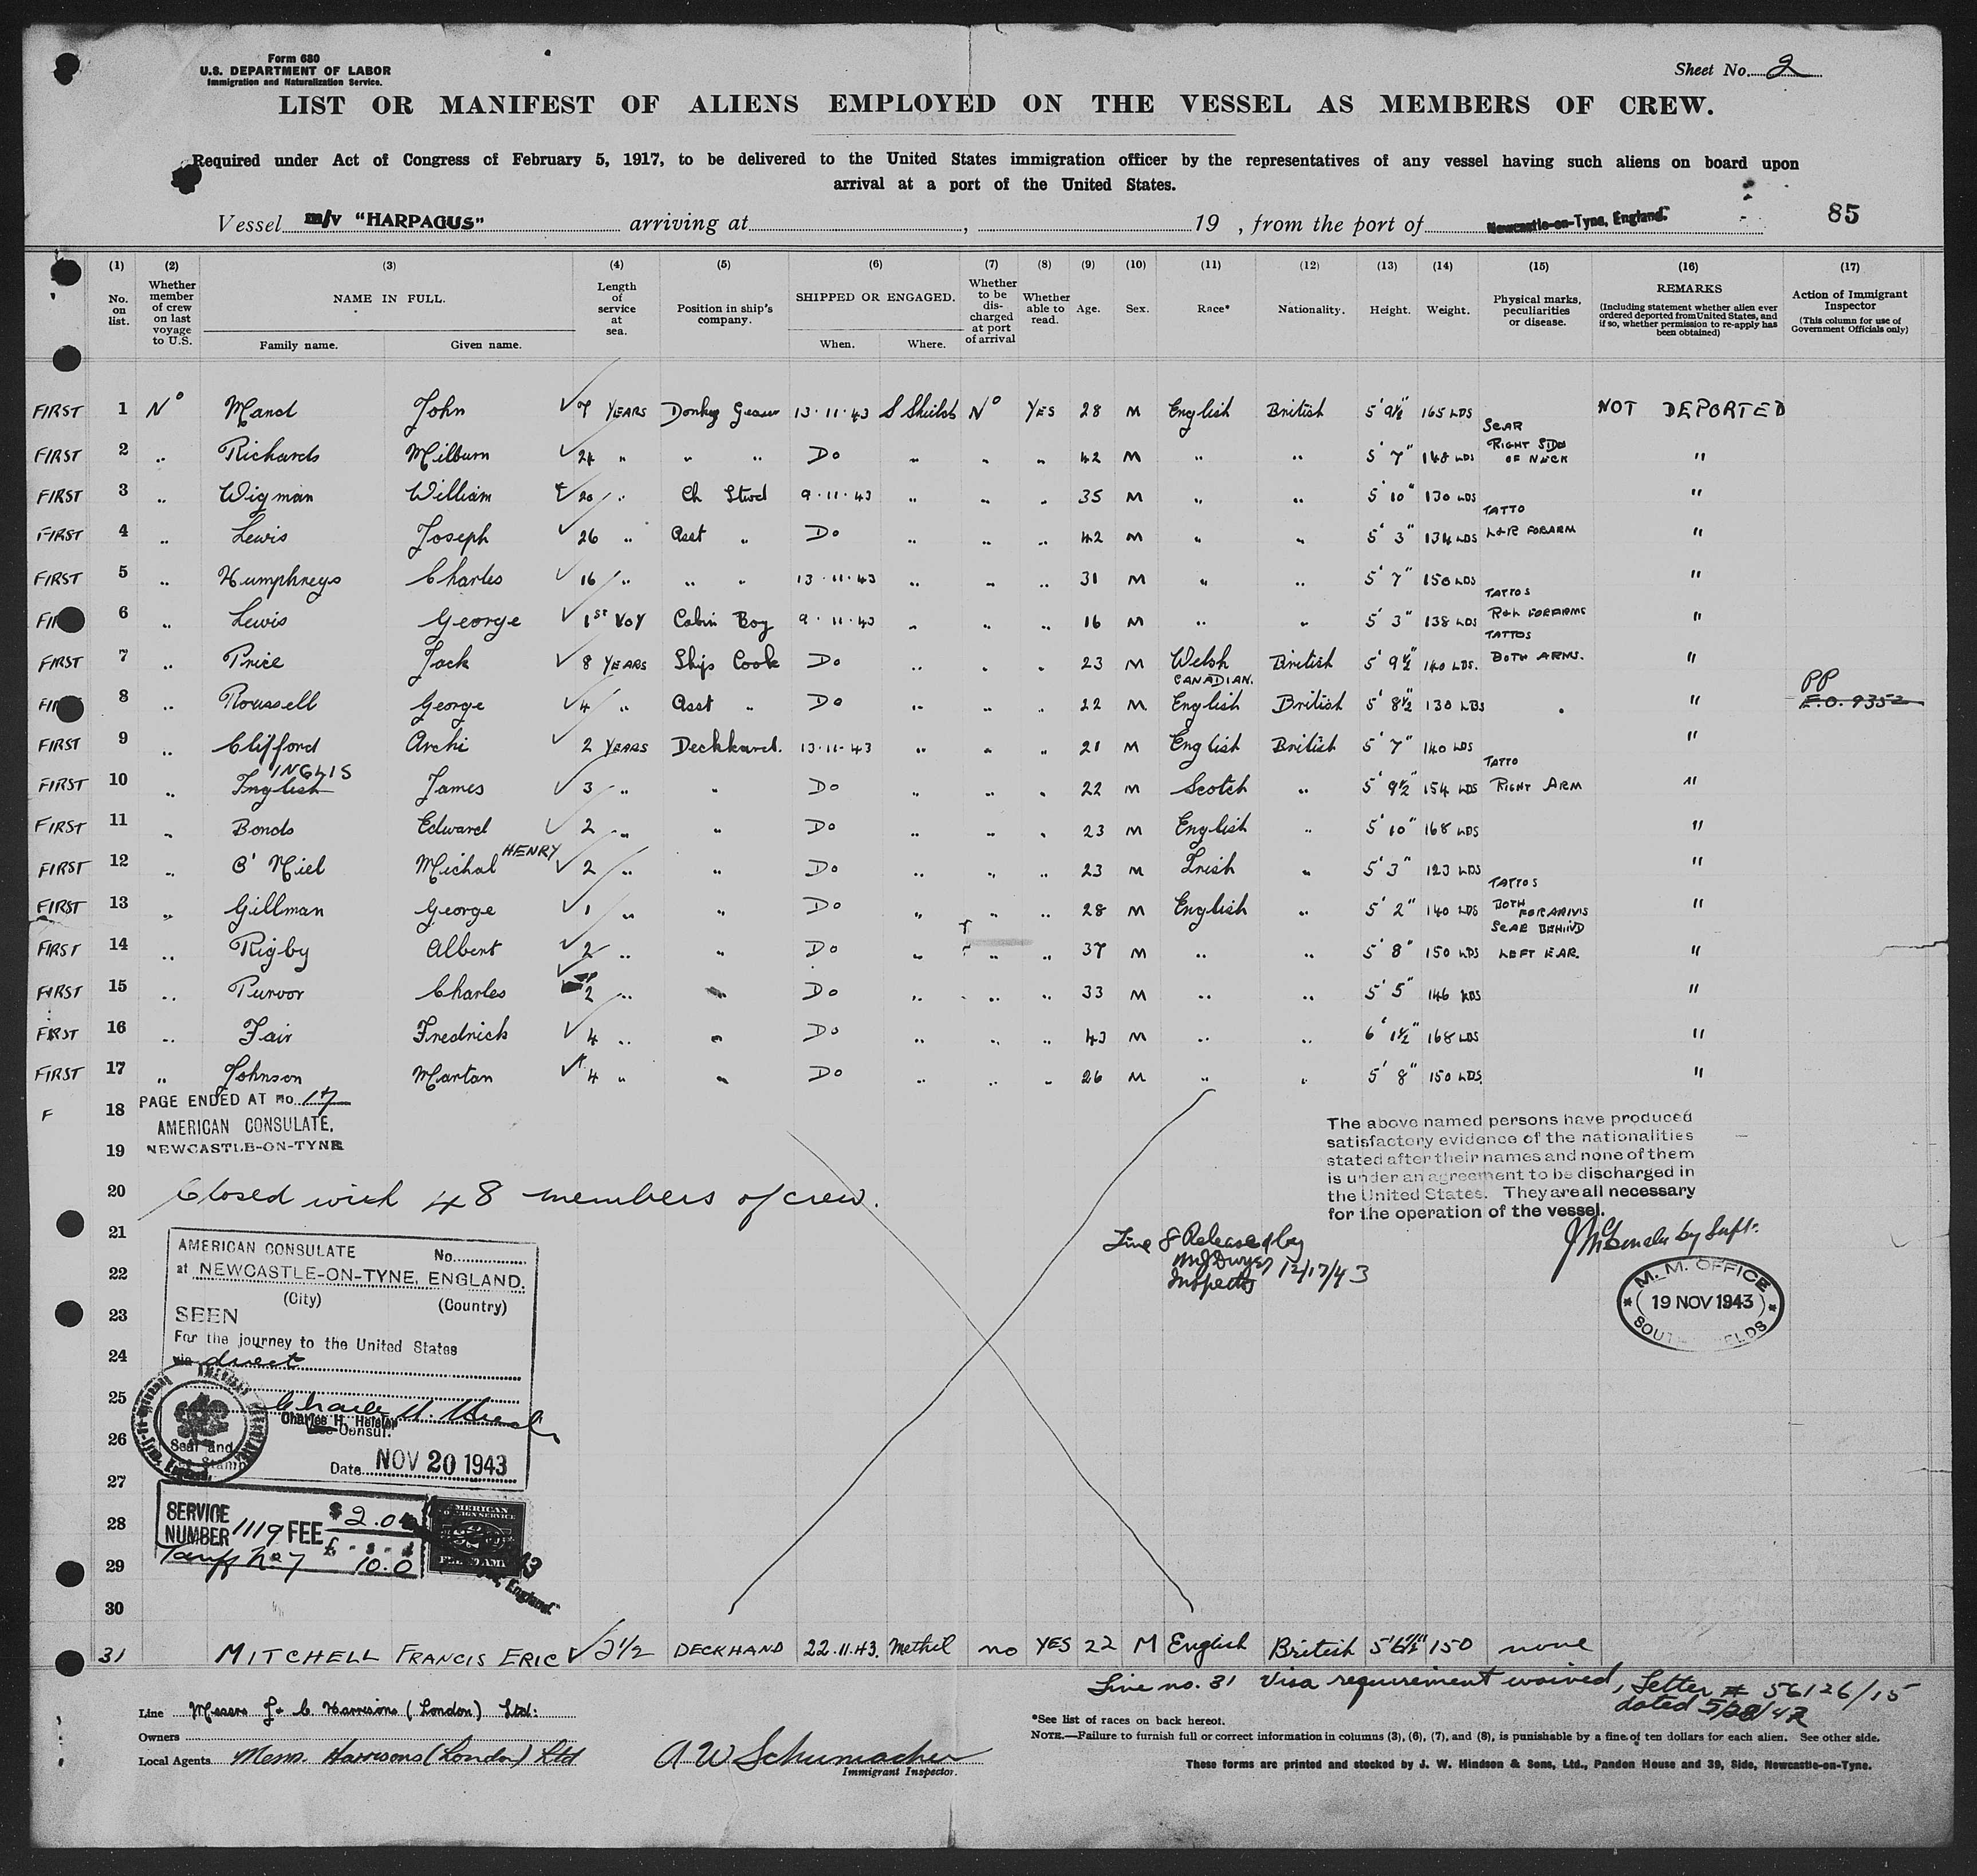 Form 680
U.S. DEPARTMENT OF LABOR
Immigration and Naturalization Service.
Sheet No. 2
LIST OR MANIFEST OF ALIENS EMPLOYED ON THE VESSEL AS MEMBERS OF CREW.
Required under Act of Congress of February 5, 1917, to be delivered to the United States immigration officer by the representatives of any vessel having such aliens on board upon
arrival at a port of the United States.
Vessel m/v "HARPAGUS" arriving at , 19 , from the port of Newcastle-on-Tyne, England. 85
(1) (2) (3) (4) (5) (6) (7) (8) (9) (10) (11) (12) (13) (14) (15) (16) (17)
No. on list. Whether member of crew on last voyage to U.S. NAME IN FULL. Family name. Given name. Length of service at sea. Position in ship's company. SHIPPED OR ENGAGED. When. Where. Whether to be discharged at port of arrival Whether able to read. Age. Sex. Race* Nationality. Height. Weight. Physical marks, peculiarities or disease. REMARKS (Including statement whether alien ever ordered deported from United States, and if so, whether permission to re-apply has been obtained) Action of Immigrant Inspector (This column for use of Government Officials only)
FIRST 1 No Mand John 7 YEARS Donkey Greaser 13.11.43 S Shields No YES 28 M English British 5' 9½ 165 LBS NOT DEPORTED
FIRST 2 " Richards Milburn 24 " " " Do " " " 42 M " " 5' 7" 148 LBS SCAR RIGHT SIDE OF NECK "
FIRST 3 " Wigman William 20 " Ch Stwd 9.11.43 " " " 35 M " " 5' 10" 130 LBS "
FIRST 4 " Lewis Joseph 26 " Asst " Do " " " 42 M " " 5' 3" 134 LBS TATTO L&R FORARM "
FIRST 5 " Humphreys Charles 16 " " " 13.11.43 " " " 31 M " " 5' 7" 150 LBS "
FIRST 6 " Lewis George 1ST VOY Cabin Boy 9.11.43 " " " 16 M " " 5' 3" 138 LBS TATTOS R&L FORFARMS "
FIRST 7 " Price Jack 8 YEARS Ships Cook Do " " " 23 M Welsh British 5' 9½" 140 LBS. TATTOS BOTH ARMS. "
FIRST 8 " Roussell George 4 " Asst " Do " " " 22 M CANADIAN. English British 5' 8½ 130 LBS " PP E.O. 9352
FIRST 9 " Clifford Archi 2 YEARS Deckhand. 13.11.43 " " " 21 M English British 5' 7" 140 LBS "
FIRST 10 " English INGLIS James 3 " " Do " " " 22 M Scotch " 5' 9½" 154 LBS TATTO RIGHT ARM "
FIRST 11 " Bonds Edward 2 " " Do " " " 23 M English " 5' 10" 168 LBS "
FIRST 12 " O' Niel Michal HENRY 2 " " Do " " " 23 M Irish " 5' 3" 123 LBS "
FIRST 13 " Gillman George 1 " " Do " " " 28 M English " 5' 2" 140 LBS TATTOS BOTH FORARMS "
FIRST 14 " Rigby Albert 2 " " Do " " " 37 M " " 5' 8" 150 LBS SCAR BEHIND LEFT EAR. "
FIRST 15 " Purvor Charles 2 " " Do " " " 33 M " " 5' 5" 146 LBS "
FIRST 16 " Fair Fredrick 4 " " Do " " " 43 M " " 6' 1½" 168 LBS "
FIRST 17 " Johnson Martan 4 " " Do " " " 26 M " " 5' 8" 150 LBS. "
F 18 PAGE ENDED AT No. 17
AMERICAN CONSULATE,
19 NEWCASTLE-ON-TYNE
The above named persons have produced
satisfactory evidence of the nationalities
stated after their names and none of them
is under an agreement to be discharged in
the United States. They are all necessary
for the operation of the vessel.
20 Closed with 48 members of crew.
21
22
23
24
25
26
27
28
29
30
AMERICAN CONSULATE No.
at NEWCASTLE-ON-TYNE, ENGLAND.
(City) (Country)
SEEN
For the journey to the United States
via direct
Charles H. Heisler
Vice Consul.
Seal and
Stamp
Date NOV 20 1943
Line 8 Released by
M J Dwyer 12/17/43
Inspector
Supt.
M. M. OFFICE
19 NOV 1943
SOUTH SHIELDS
SERVICE NUMBER 1119 FEE $ 2.00
£ - s - d
Tariff No 7 10.0
AMERICAN
FOREIGN SERVICE
England.
31 MITCHELL FRANCIS ERIC 2½ DECKHAND 22.11.43. Methil no YES 22 M English British 5'6½" 150 none
Line no. 31 Visa requirement waived, Letter # 56126/15
dated 5/28/42
Line Messrs J & C Harrisons (London) Ltd:
Owners
Local Agents Messrs. Harrisons (London) Ltd
A W Schumacher
Immigrant Inspector.
*See list of races on back hereof.
NOTE.—Failure to furnish full or correct information in columns (3), (6), (7), and (8), is punishable by a fine of ten dollars for each alien. See other side.
These forms are printed and stocked by J. W. Hindson & Sons, Ltd., Pandon House and 39, Side, Newcastle-on-Tyne.